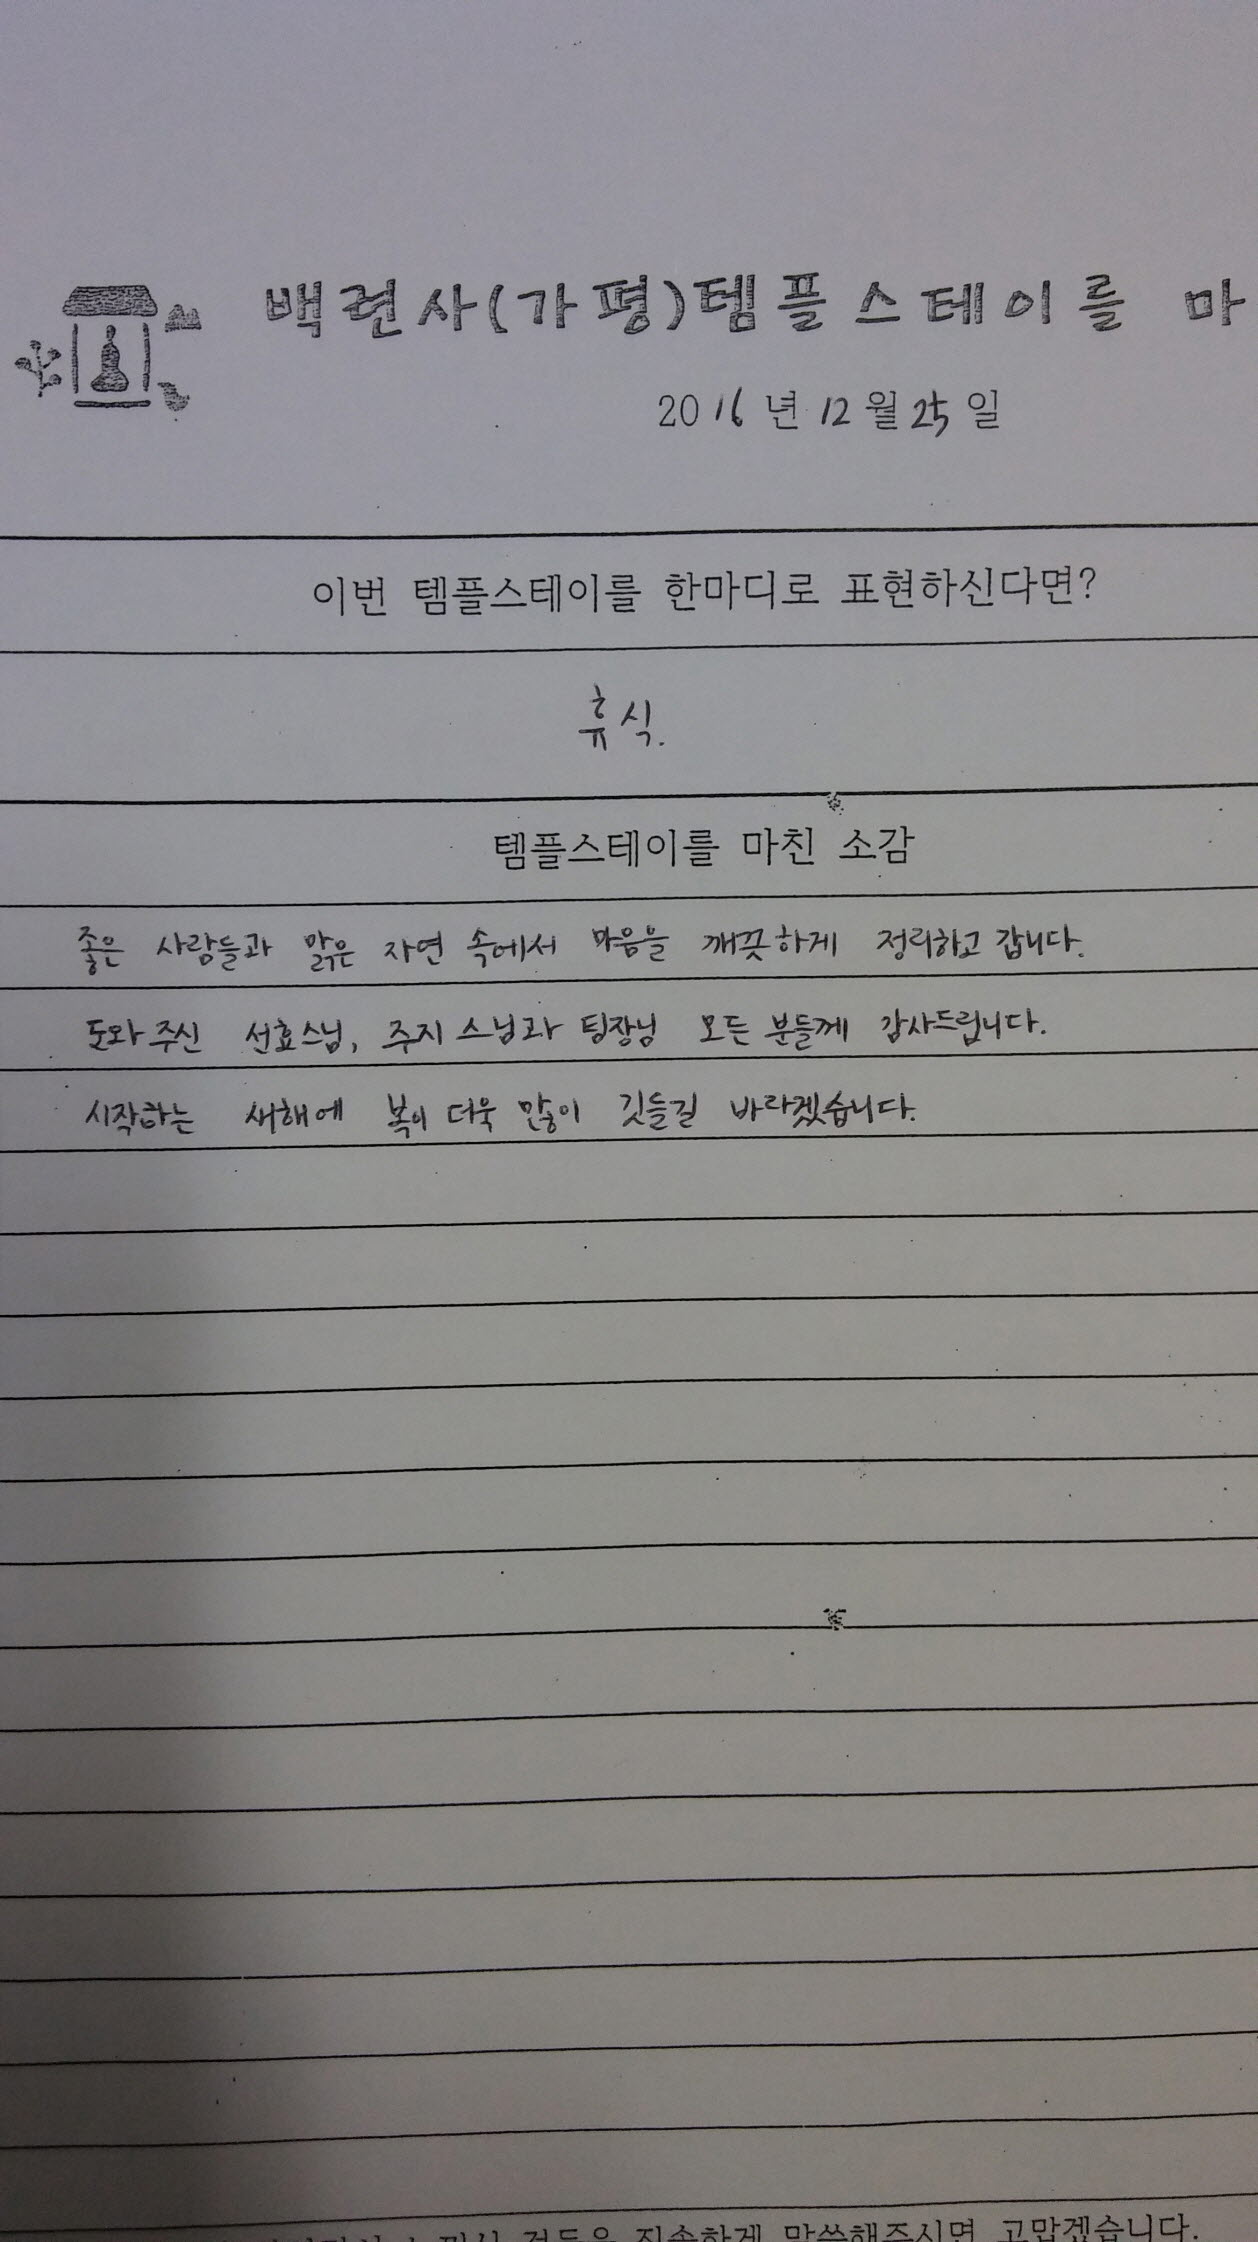 백련사(가평)템플스테이를 마
2016년 12월 25일
이번 템플스테이를 한마디로 표현하신다면?
휴식.
템플스테이를 마친 소감
좋은 사람들과 맑은 자연 속에서 마음을 깨끗하게 정리하고 갑니다.
도와주신 선효스님, 주지스님과 팀장님 모든 분들께 감사드립니다.
시작하는 새해에 복이 더욱 많이 깃들길 바라겠습니다.
것들을 진솔하게 말씀해주시면 고맙겠습니다.